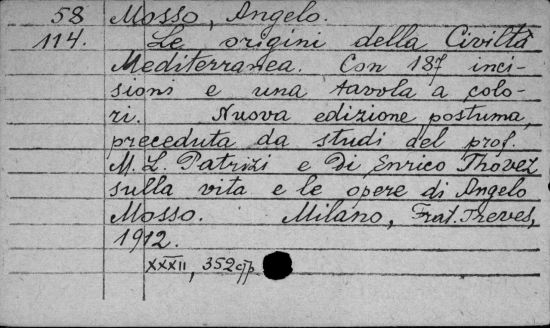 58 Mosso, Angelo.
114. Le origini della Civiltà
Mediterranea. Con 187 inci-
sioni e una tavola a colo-
ri. Nuova edizione postuma,
preceduta da studi del prof.
M. L. Patrizi e Di Enrico Thovez
sulla vita e le opere di Angelo
Mosso. Milano, Frat. Treves,
1912.
XXXII, 352